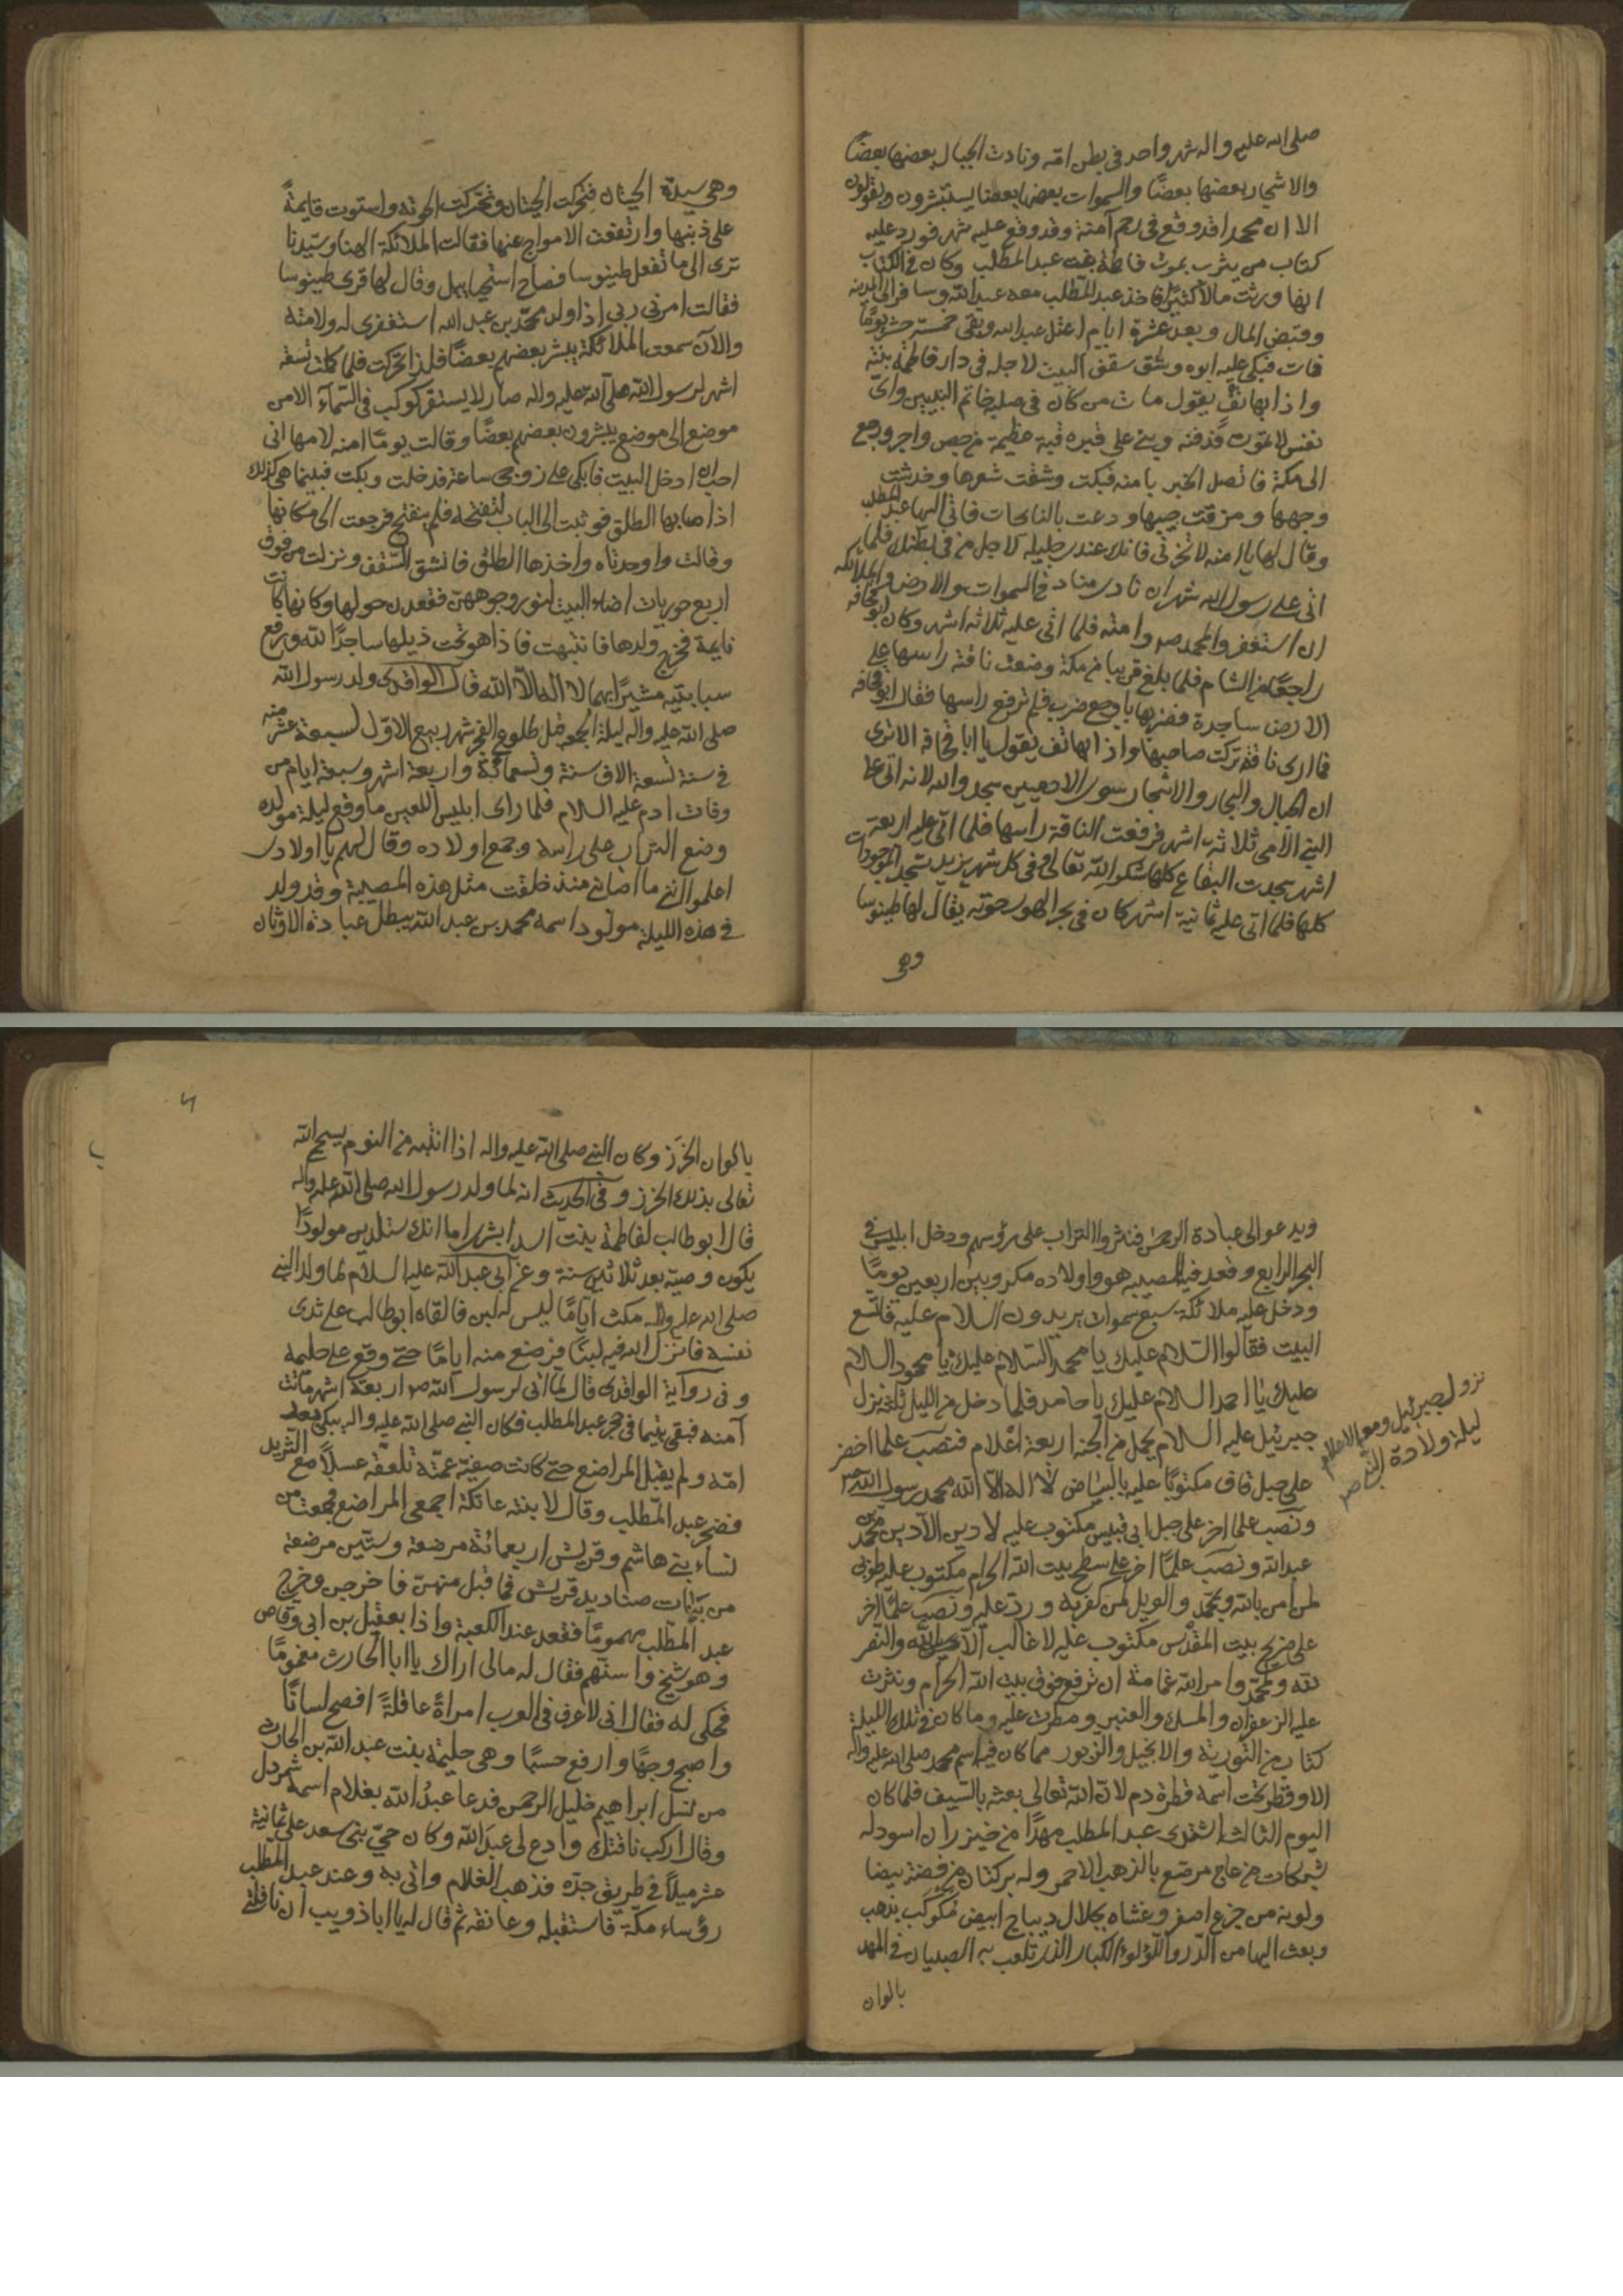 صلى الله عليه واله شهر واحد فى بطن امه ونادت الجبال بعضها بعضًا
والاشجار بعضها بعضًا والسموات بعضها بعضا يستبشرون ويقولون
الا ان محمدا قد وقع فى رحم آمنة وقد وقع عليه شهر فورد عليه
كتاب من يثرب بموت فاطمة بنت عبد المطلب وكان فى الكتاب
انها ورثت مالا كثيرًا فاخذ عبد المطلب معه عبد الله وسافر الى المدينه
وقبض المال وبعد عشرة ايام اعتل عبد الله وبقى خمسة عشر يومًا
فمات فبكى عليه ابوه وشق سقف البيت لاجله فى دار فاطمة بنته
واذا بهاتف يقول مات من كان فى صلبه خاتم النبيين واى
نفس لا تموت فدفنه وبنى على قبره قبة عظيمة من جص واجر ورجع
الى مكة فاتصل الخبر بامنه فبكت وشقت شعرها وخدشت
وجهها ومزقت جيبها ودعت بالنايحات فاتى اليها عبد المطلب
وقال لها يا امنه لا تحزنى فانك عندى جليله لاجل من فى بطنك فلما
اتى على رسول الله شهران نادى مناد فى السموات والارض والملائكه
ان استغفروا لمحمد ص وامته فلما اتى عليه ثلاثه اشهر وكان ابو قحافه
راجعًا من الشام فلما بلغ قريبا من مكة وضعت ناقته راسها على
الارض ساجدة فضربها باوجع ضرب فلم ترفع راسها فقال ابو قحافه
فما ارى ناقة تركت صاحبها واذا بهاتف يقول يا ابا قحافه الا ترى
ان الجبال والبحار والاشجار سوى الادميين سجدوا لله لانه اتى على
النبى الامى ثلاثه اشهر فرفعت الناقة راسها فلما اتى عليه اربعة
اشهر سجدت البقاع كلها شكرا لله تعالى وفى كل شهر يزيد تسجد الموجودات
كلها فلما اتى عليه ثمانية اشهر كان فى بحر الهوى حوته يقال لها طينوسا
وهى
وهى سيدة الحيتان فتحركت الحيتان وتحركت الحوته واستوت قايمةً
على ذنبها وارتفعت الامواج عنها فقالت الملائكة الهنا وسيدنا
ترى الى ما تفعل طينوسا فصاح استحيائيل وقال لها قرى طينوسا
فقالت امرنى ربى اذا ولد محمد بن عبد الله استغفرى له ولامته
والآن سمعت الملائكة يبشر بعضهم بعضًا فلذا تحركت فلما كملت تسعة
اشهر لرسول الله صلى الله عليه واله صار لا يستقر كوكب فى السمآء الا من
موضع الى موضع يبشرون بعضهم بعضًا وقالت يومًا امنه لامها انى
احب ان ادخل البيت فابكى على زوجى ساعة فدخلت وبكت فبينما هى كذلك
اذا صابها الطلق فوثبت الى الباب لتفتحه فلم ينفتح فرجعت الى مكانها
وقالت واوحدتاه واخذها الطلق فانشق السقف ونزلت من فوق
اربع حوريات اضاء البيت لنور وجوههن فقعدن حولها وكانها كانت
نايمة فخرج ولدها فانتبهت فاذا هو تحت ذيلها ساجدًا لله ورفع
سبابتيه مشيرًا بهما لا اله الا الله قال الواقدى ولد رسول الله
صلى الله عليه واله ليلة الجمعه قبل طلوع الفجر شهر ربيع الاول لسبعة عشر منه
فى سنة تسعة الاف سنة وتسعمائة واربعة اشهر وسبعة ايام من
وفات ادم عليه السلام فلما راى ابليس اللعين ما وقع ليلة مولده
وضع التراب على راسه وجمع اولاده وقال لهم يا اولادى
اعلموا اننى ما اصابنى منذ خلقت مثل هذه المصيبة وقد ولد
فى هذه الليلة مولود اسمه محمد بن عبد الله يبطل عبادة الاوثان
ويدعو الى عبادة الرحمن فنثروا التراب على رؤسهم ودخل ابليس فى
البحر الرابع وقعد فيه للمصيبه هو واولاده مكروبين اربعين يومًا
ودخل عليه ملائكة سبع سموات يريدون السلام عليه فاتسع
البيت فقالوا السلام عليك يا محمد السلام عليك يا محمود السلام
عليك يا احمد السلام عليك يا حامد فلما دخل من الليل ثلثه نزل
جبرئيل عليه السلام يحمل من الجنه اربعة اعلام فنصب علما اخضر
على جبل قاف مكتوبًا عليه بالبياض لا اله الا الله محمد رسول الله ص
ونصب علما اخر على جبل ابى قبيس مكتوب عليه لا دين الا دين محمد بن
عبد الله ونصب علمًا اخر على سطح بيت الله الحرام مكتوب عليه طوبى
لمن امن بالله وبمحمد والويل لمن كفر به ورد عليه ونصب علمًا اخر
على ضريح بيت المقدس مكتوب عليه لا غالب الا الله والنصر
لله ولمحمد وامر الله غمامة ان ترفع فوق بيت الله الحرام ونثرت
عليه الزعفران والمسك والعنبر ومطرت عليه وما كان فى تلك الليلة
كتاب من التورية والانجيل والزبور مما كان فيه اسم محمد صلى الله عليه واله
الا وقطر تحت اسمه قطرة دم لان الله تعالى بعثه بالسيف فلما كان
اليوم الثالث اشترى عبد المطلب مهدًا من خيزران اسود له
شبكات من عاج مرصع بالذهب الاحمر وله بركتان من فضة بيضا
ولونه من جزع اصفر وغشاه بجلال ديباج ابيض مكوكب بذهب
وبعث اليها من الدر واللؤلؤ الكبار الذى تلعب به الصبيان فى المهد
بالوان
نزول جبرئيل ومعه الاعلام
ليلة ولادة النبى ص
٦
بالوان الخرز وكان النبى صلى الله عليه واله اذا انتبه من النوم يسبح الله
تعالى بذلك الخرز وفى الحديث انه لما ولد رسول الله صلى الله عليه واله
قال ابو طالب لفاطمة بنت اسد ابشرى اما انك ستلدين مولودًا
يكون وصيه بعد ثلاثين سنة وعن ابى عبد الله عليه السلام لما ولد النبى
صلى الله عليه واله مكث ايامًا ليس له لبن فالقاه ابو طالب على ثدى
نفسه فانزل الله فيه لبنًا فرضع منه ايامًا حتى وقع على حليمه
وفى رواية الواقدى قال لما اتى لرسول الله ص اربعة اشهر ماتت
آمنه فبقى يتيما فى حجر عبد المطلب فكان النبى صلى الله عليه واله يبكى بعد
امه ولم يقبل المراضع حتى كانت صفيه عمته تلعقه عسلًا مع الثريد
فضجر عبد المطلب وقال لابنته عاتكة اجمعى المراضع فجمعت من
نساء بنى هاشم وقريش اربعمائة مرضعة وستين مرضعة
من بنات صناديد قريش فما قبل منهن فاخرجن وخرج
عبد المطلب مهمومًا فقعد عند الكعبة واذا بعقيل بن ابى وقاص
وهو شيخ واستهم فقال له مالى اراك يا ابا الحارث مغمومًا
فحكى له فقال انى لاعرف فى العرب امراةً عاقلةً افصح لسانًا
واصبح وجهًا وارفع حسبًا وهى حليمة بنت عبد الله بن الحارث
من نسل ابراهيم خليل الرحمن فدعا عبد الله بغلام اسمه شمردل
وقال اركب ناقتك وادع لى عبد الله وكان حى بنى سعد على ثمانية
عشر ميلًا فى طريق جده فذهب الغلام واتى به وعند عبد المطلب
رؤساء مكة فاستقبله وعانقه ثم قال له يا ابا ذويب ان نافلتى